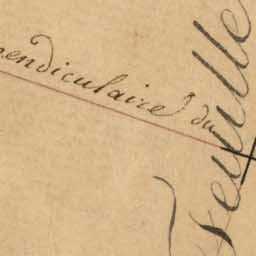 pendiculaire du
feuille